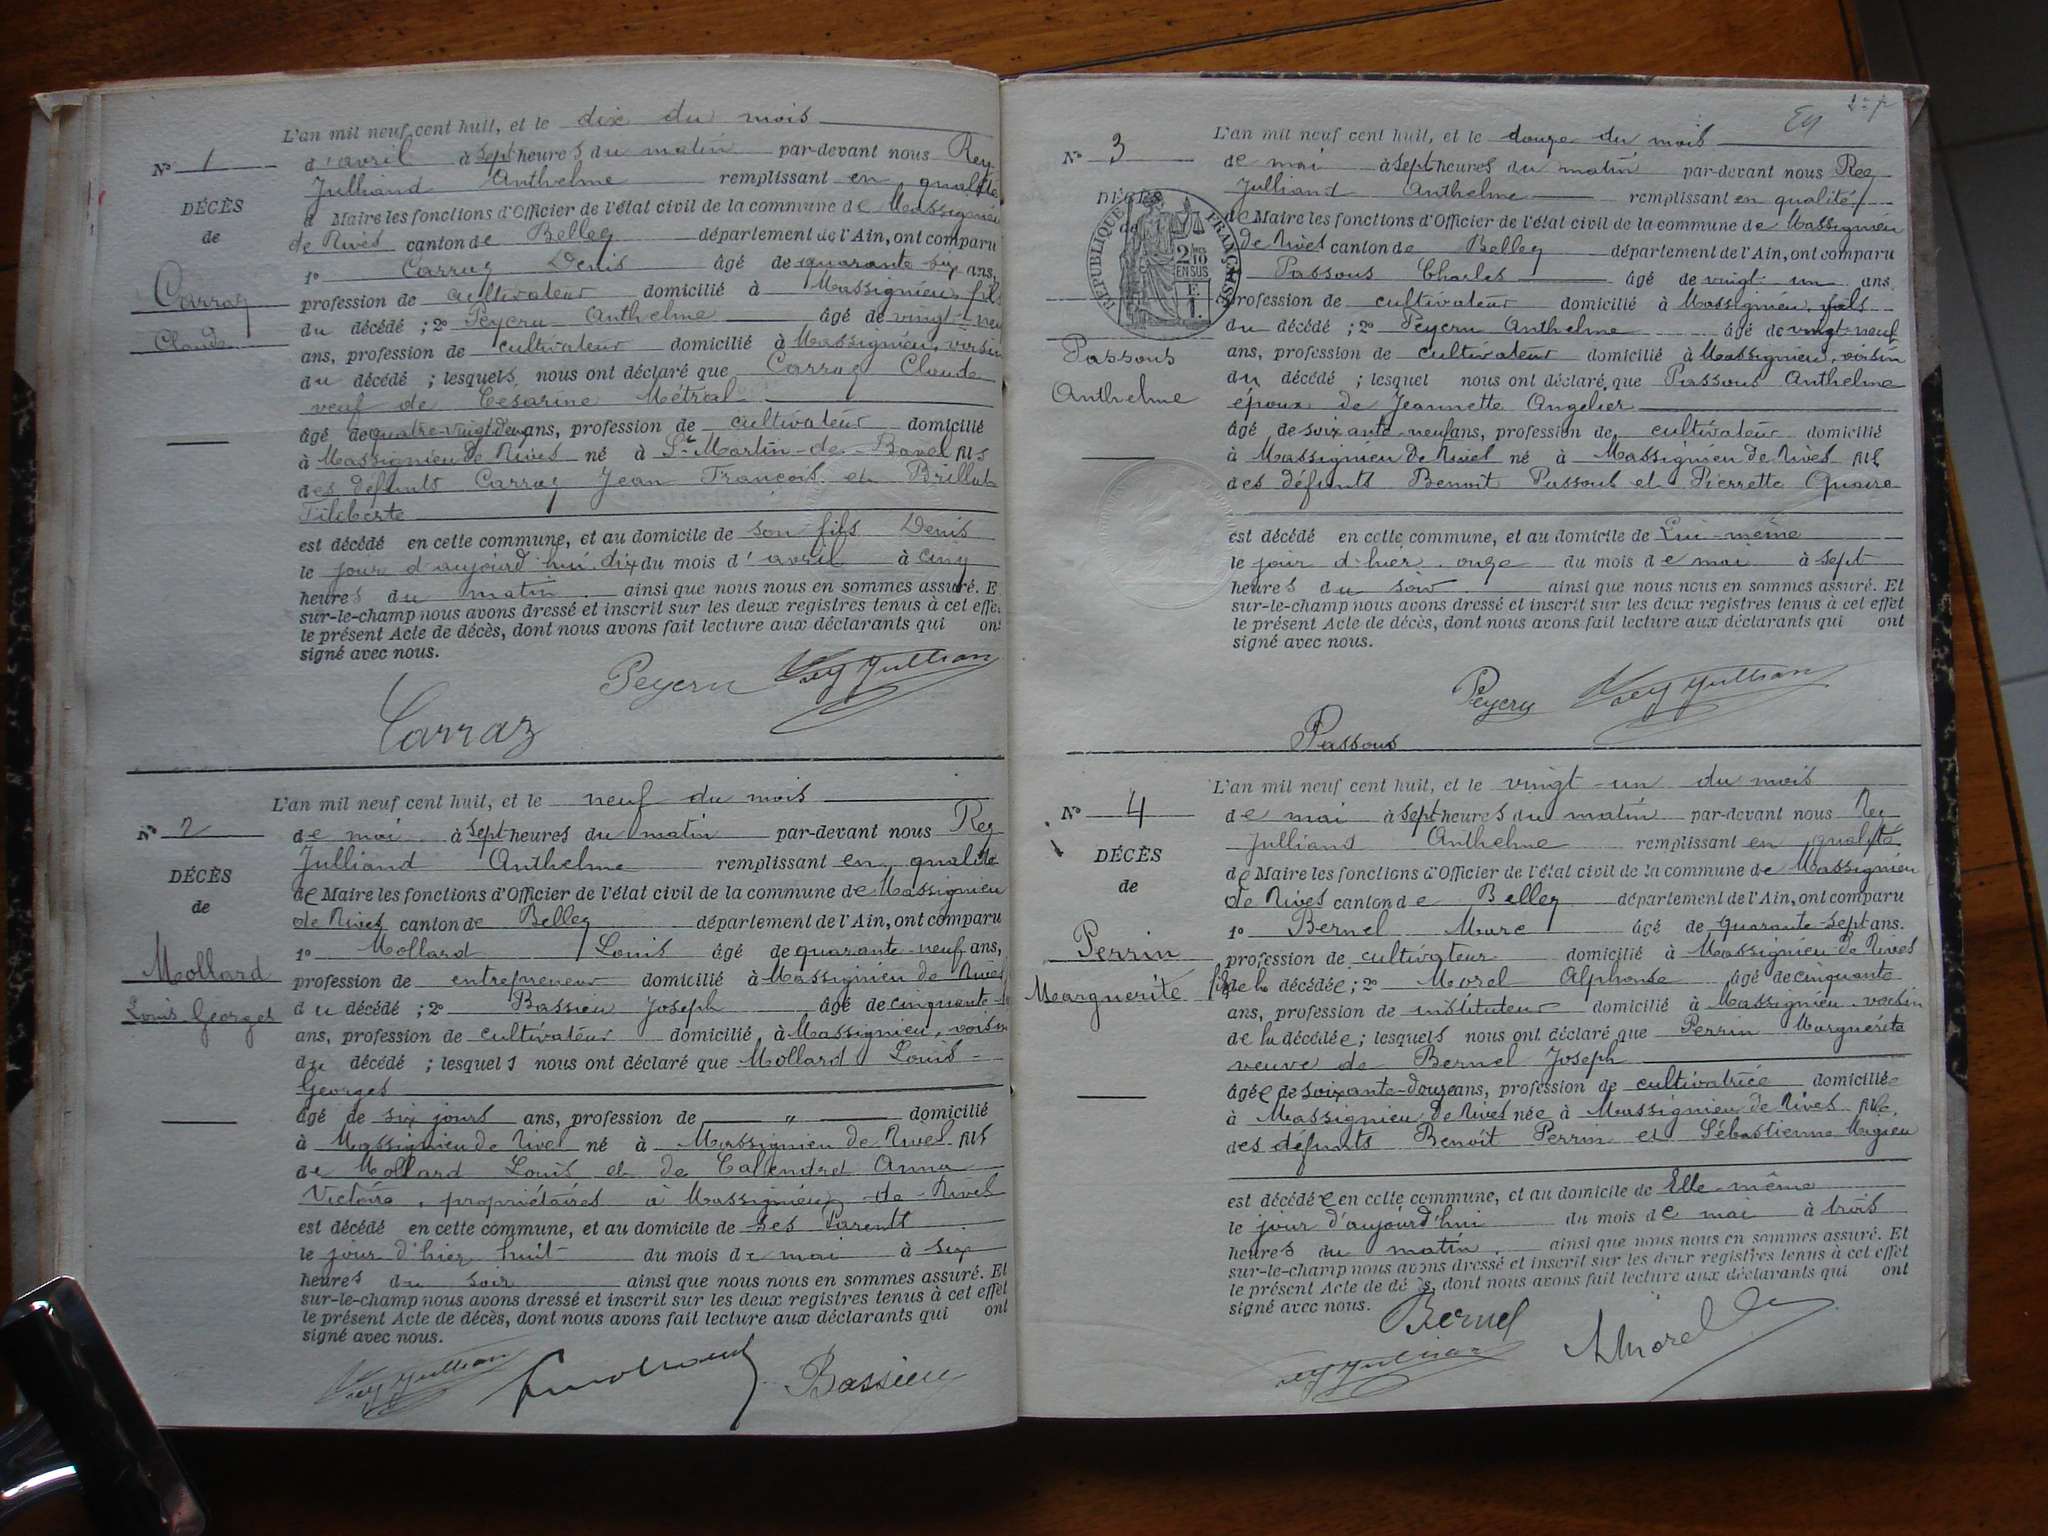 L'an mil neuf cent huit, et le dix du mois
N° 1 d'avril à sept heures du matin par-devant nous Rey
Julliand Anthelme remplissant en qualité
DÉCÈS d Maire les fonctions d'Officier de l'état civil de la commune de Massignieu
de de Rives canton de Belley département de l'Ain, ont comparu
1° Carraz Denis âgé de quarante six ans,
Carraz profession de cultivateur domicilié à Massignieu, fils
du décédé ; 2° Peycru Anthelme âgé de vingt-neuf
Claude ans, profession de cultivateur domicilié à Massignieu, voisin
du décédé ; lesquels nous ont déclaré que Carraz Claude
veuf de Césarine Métral
âgé de quatre-vingt deux ans, profession de cultivateur domicilié
à Massignieu de Rives né à St Martin-de-Bavel fils
des défunts Carraz Jean François et Brillat
Filiberte
est décédé en cette commune, et au domicile de son fils Denis
le jour d'aujourd'hui dix du mois d'avril à cinq
heures du matin ainsi que nous nous en sommes assuré. E
sur-le-champ nous avons dressé et inscrit sur les deux registres tenus à cet effe
le présent Acte de décès, dont nous avons fait lecture aux déclarants qui ont
signé avec nous.
Peycru Rey Jullian
Carraz
L'an mil neuf cent huit, et le neuf du mois
N° 2 de mai à sept heures du matin par-devant nous Rey
Julliand Anthelme remplissant en qualité
DÉCÈS de Maire les fonctions d'Officier de l'état civil de la commune de Massignieu
de de Rives canton de Belley département de l'Ain, ont comparu
1° Mollard Louis âgé de quarante-neuf ans,
Mollard profession de entrepreneur domicilié à Massignieu de Rives
Louis Georges du décédé ; 2° Bassieu Joseph âgé de cinquante
ans, profession de cultivateur domicilié à Massignieu, voisin
du décédé ; lesquels nous ont déclaré que Mollard Louis-
Georges
âgé de six jours ans, profession de " domicilié
à Massignieu de Rives né à Massignieu de Rives fils
de Mollard Louis et de Anna
Victoire, propriétaires à Massignieu-de-Rives
est décédé en cette commune, et au domicile de ses Parents
le jour d'hier huit du mois de mai à six
heures du soir ainsi que nous nous en sommes assuré. Et
sur-le-champ nous avons dressé et inscrit sur les deux registres tenus à cet effet
le présent Acte de décès, dont nous avons fait lecture aux déclarants qui ont
signé avec nous.
Rey Jullian Bassieu
L'an mil neuf cent huit, et le douze du mois
N° 3 de mai à sept heures du matin par-devant nous Rey
Julliand Anthelme remplissant en qualité
DÉCÈS de Maire les fonctions d'Officier de l'état civil de la commune de Massignieu
de de Rives canton de Belley département de l'Ain, ont comparu
RÉPUBLIQUE FRANÇAISE
2/10 EN SUS
Passous Charles âgé de vingt-un ans
profession de cultivateur domicilié à Massignieu, fils
du décédé ; 2° Peycru Anthelme âgé de vingt-neuf
Passous ans, profession de cultivateur domicilié à Massignieu, voisin
du décédé ; lesquel nous ont déclaré que Passous Anthelme
Anthelme époux de Jeannette Angelier
âgé de soixante-neuf ans, profession de cultivateur domicilié
à Massignieu de Rives né à Massignieu de Rives fils
des défunts Benoit Passous et Pierrette
est décédé en cette commune, et au domicile de Lui-même
le jour d'hier onze du mois de mai à sept
heures du soir ainsi que nous nous en sommes assuré. Et
sur-le-champ nous avons dressé et inscrit sur les deux registres tenus à cet effet
le présent Acte de décès, dont nous avons fait lecture aux déclarants qui ont
signé avec nous.
Peycru Rey Jullian
Passous
L'an mil neuf cent huit, et le vingt-un du mois
N° 4 de mai à sept heures du matin par-devant nous Rey
Julliand Anthelme remplissant en qualité
DÉCÈS de Maire les fonctions d'Officier de l'état civil de la commune de Massignieu
de de Rives canton de Belley département de l'Ain, ont comparu
1° Bernel Marc âgé de quarante-sept ans.
Perrin profession de cultivateur domicilié à Massignieu de Rives
Marguerite fils de la décédée ; 2° Morel Alphonse âgé de cinquante
ans, profession de instituteur domicilié à Massignieu voisin
de la décédée ; lesquels nous ont déclaré que Perrin Marguerite
veuve de Bernel Joseph
âgée de soixante-douze ans, profession de cultivatrice domiciliée
à Massignieu de Rives née à Massignieu de Rives fille
des défunts Benoît Perrin et Sébastienne Mugieu
est décédée en cette commune, et au domicile de Elle-même
le jour d'aujourd'hui du mois de mai à trois
heures du matin ainsi que nous nous en sommes assuré. Et
sur-le-champ nous avons dressé et inscrit sur les deux registres tenus à cet effet
le présent Acte de décès, dont nous avons fait lecture aux déclarants qui ont
signé avec nous.
Bernel
Rey Jullian AMorel